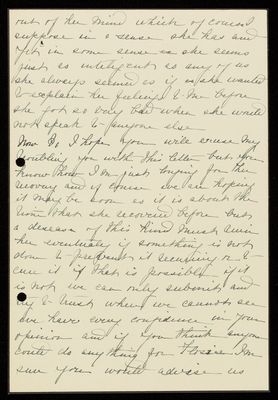 out of her mind which of course I
suppose in a sense she has and
yet in some sense as she seems
just as intelligent as any of us
she always seemed as if she wanted
to explain her feelings to me before
she got so very bad when she would
not speak to anyone else
Now Dr, I hope you will excuse my
troubling you with this letter but you
know how I'm just longing for her
recovery and of course we are hoping
it may be soon as it is about the
time that she recovered before but
a disease of this kind must ruin
her eventually if something is not
done to prevent it recurring or to
cure it if that is possible, if it
is not we can only submit and
try to trust where we cannot see
We have every confidence in your
opinion and if you think anyone
could do anything for I'm
sure you would advise us